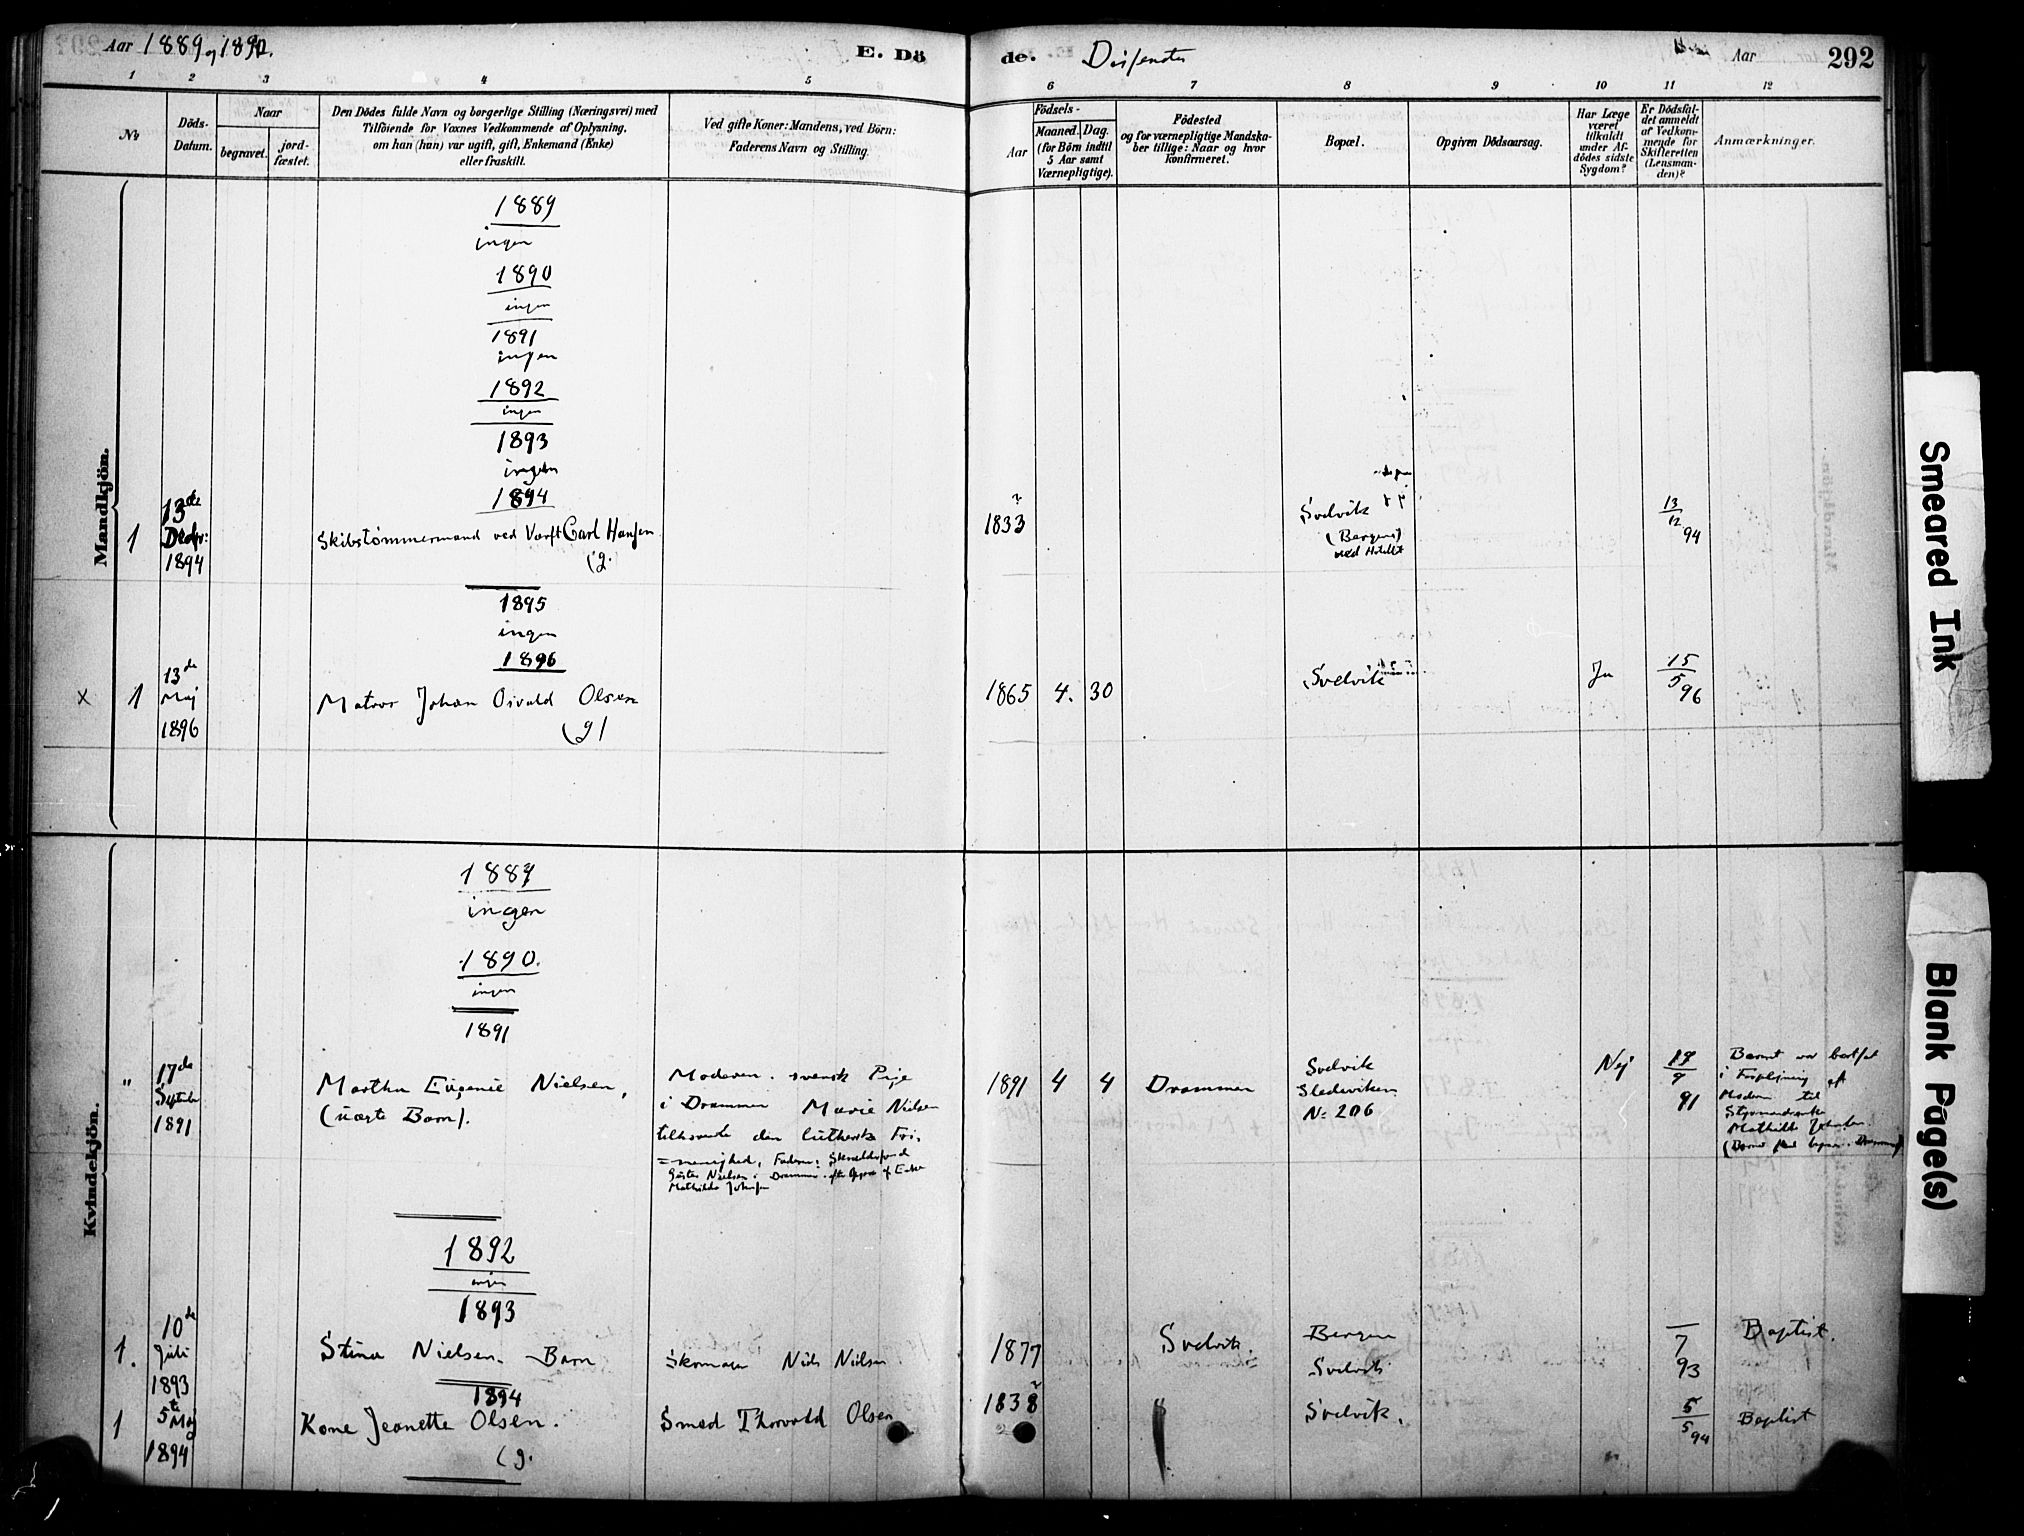 Aar 1889 og 1890.
E. Dö
de.
Dissenter
Aar
292
1 2 3 4 5 6 7 8 9 10 11 12
No
Döds-
Datum.
Naar
begravet.
jord-
fæstet.
Den Dödes fulde Navn og borgerlige Stilling (Næringsvei) med
Tilföiende for Voxnes Vedkommende af Oplysning,
om han (hun) var ugift, gift, Enkemand (Enke)
eller fraskilt.
Ved gifte Koner: Mandens, ved Börn:
Faderens Navn og Stilling.
Födsels-
Aar
Maaned.
Dag.
(for Börn indtil
5 Aar samt
Værnepligtige).
Födested
og for værnepligtige Mandska-
ber tillige: Naar og hvor
konfirmeret.
Bopæl.
Opgiven Dödsaarsag.
Har Læge
været
tilkaldt
under Af-
dödes sidste
Sygdom?
Er Dödsfal-
det anmeldt
af Vedkom-
mende for
Skifteretten
(Lensman-
den)?
Anmærkninger.
Mandkjön.
1889
ingen
1890
ingen
1891
ingen
1892
ingen
1893
ingen
1894
1
13de
Decbr:
1894
Skibstömmermand ved Værft Carl Hansen
(g.
1833
Svelvik
(Bergene)
ved Hotellet
13
12 94
1895
ingen
1896
x 1
13de
Maj
1896
Matros Johan Osvald Olsen
(g)
1865 4. 30
Svelvik
Ja
15
5 96
Kvindekjön.
1889
ingen
1890.
ingen
1891
"
17de
Septbr
1891
Martha Eugenie Nielsen,
(uægte Barn).
Moderen. svensk Pige
i Drammen Marie Nielsen
tilhørende den lutherske Fri-
=menighed, Faderen:
Nielsen i Drammen
Mathilde Johnsen
1891 4 4
Drammen
Svelvik
No 206
Nej
17
9
91
Barnet var bortsat
i Forplejning af
Moderen til
Styrmandsenke
Mathilde Johnsen.
1892
ingen
1893
1.
10de
Juli
1893
Stina Nielsen. Barn
Skomager Niels Nielsen
1877
Svelvik.
Bergen
Svelvik
7
93
Baptist.
1894
1
5te Maj
1894
Kone Jeanette Olsen.
(g.
Smed Thorvald Olsen
1838
"
Svelvik.
5
5 94
Baptist
Smeared Ink
Blank Page(s)